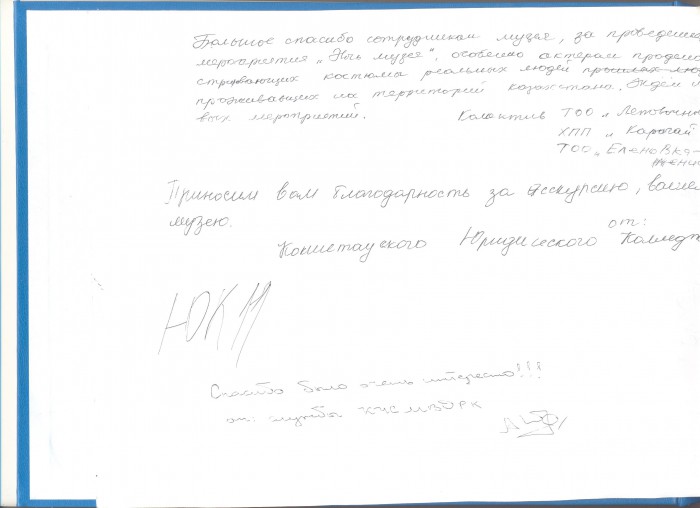 Большое спасибо сотрудникам музея, за проведение
мероприятия „Ночь музея", особенно актерам продемо
стрирующих костюмы реальных людей прошлых люд
проживающих на территорий казахстана. Ждём н
вых мероприятий. Колактив ТОО „Летовочн
ХПП „Карагай
ТОО „Еленовка-
Приносим вам благодарность за экскурсию, ваше
музею.
от:
Кокшетауского Юридического Колледж
ЮК 11
Спасибо было очень интересно!!!
от: службы КЧСМВДРК